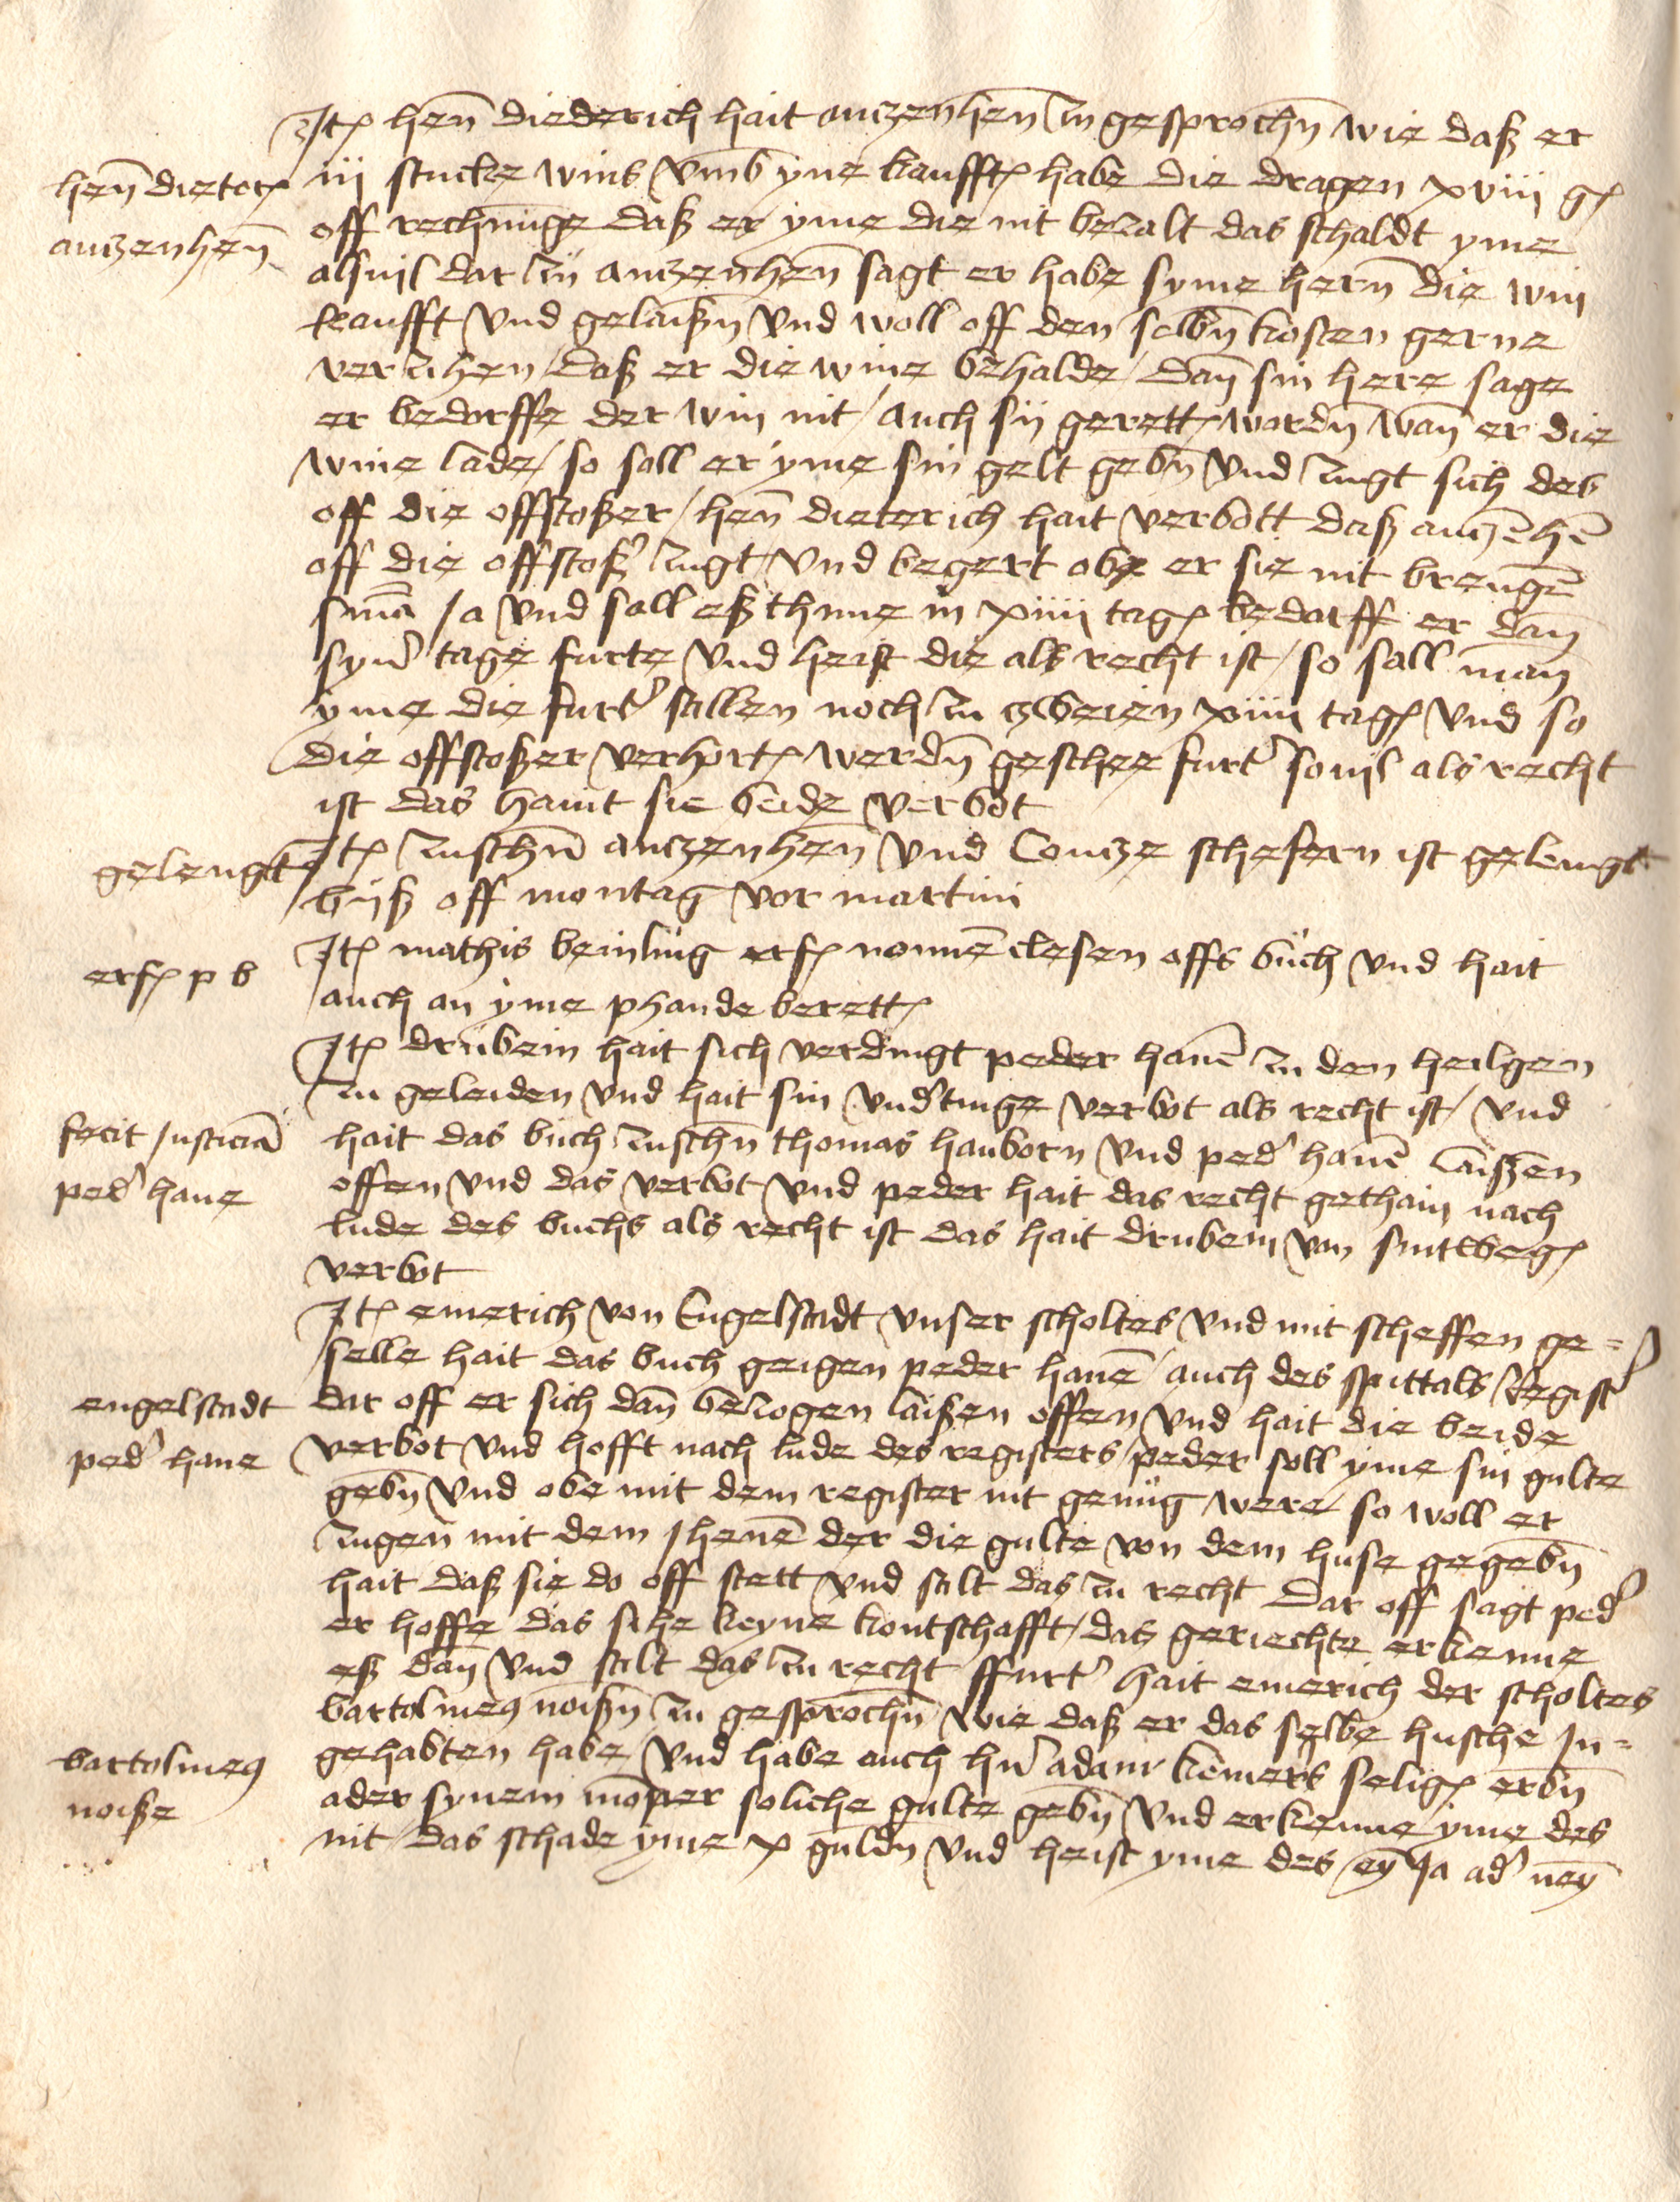 Itꝭ hen̄ diederich hait antzenhen̄ zu gesprochn̄ wie daß er
hen̄ dieterꝭ
antzenhen̄
iii stucke wins vmb yne kaufftꝭ habe die dragen xviii gꝭ
off rechnu̅ge daß er yme die nit bezalt das schaldt yme
alsuil dar zu̎ antzenhen̄ sagt er habe syme hern̄ die win
kaufft vnd gelaißn̄ vnd woll off den selbn̄ kosten gerne
verzihen / daß er die wine behalde / dan̄ sin here sage
er bedorffe der win nit / auch sij gerettꝭ wordn̄ wan̄ er die
wine lade / so soll er yme sin gelt gebn̄ vnd zugt sich des
off die offstoßer / hen̄ dieterich hait verbott daß antzēhē
off die offstoßʾ zugt vnd begert obe er sie nit brengē
sm̄a Ja vnd sall eß thune in xiiii tagꝭ bedarff er dan̄
synʾ tage furte vnd heist die als recht ist / so sall man
yme die furtʾ stillen noch zu zweien xiiii tagꝭ vnd so
die offstoßer verhortꝭ werdn̄ geschee furtʾ souil als recht
ist das haint sie beide verbot
gelengt
Itꝭ zuschn̄ antzenhen̄ vnd Contze schefern ist gelengt
biß off montag vor martini
erfꝭ p b
Itꝭ mathis beinling erfꝭ nonnē clesen offs buch vnd hait
auch an yme phande berettꝭ
Itꝭ drubein hait sich verdingt peder hanē zu den heilgen
zu geleiden vnd hait sin vndʾtinge verbot als recht ist / vnd
fecit Justiciā
pedʾ hane
hait das buch zuschn̄ thomas hanborn vnd pedʾ hanē laißen
offen vnd das verbot vnd peder hait das recht gethain nach
lude des buchs als recht ist das hait drubein von sintwegꝭ
verbot
Itꝭ emerich von Engelstadt vnser scholtes vnd mit scheffen ge=
selle hait das buch geigen peder hanē / auch des spittals Registʾ
engelstadt
pedʾ hane
dar off er sich dan̄ bezogen laißen offen vnd hait die beide
verbot vnd hofft nach lude des registers / peder soll yme sin gulte
gebn̄ vnd obe mit dem register nit genug were / so woll er
zugen mit dem Jhenē der die gulte von dem huse gegebn̄
hait daß sie do off stett vnd stilt das zu recht Dar off sagt pedʾ
er hoffe das sihe keyne kontschafft / das geriechte erkenne
eß dan̄ vnd stilt das zu recht ffurtʾ hait emerich der scholtes
bartolmeꝰ noißn̄ zu gesprochn̄ wie daß er das selbe husche In=
bartolmeꝰ
noiße
gehabten habe / vnd habe auch hn̄ʾ adam kemers seligꝭ erbn̄
ader synem momper soliche gulte gebn̄ vnd erkenne yme des
nit / das schade yme x guldn̄ vnd heist yme des / ey̅ Ja adʾ ney̅